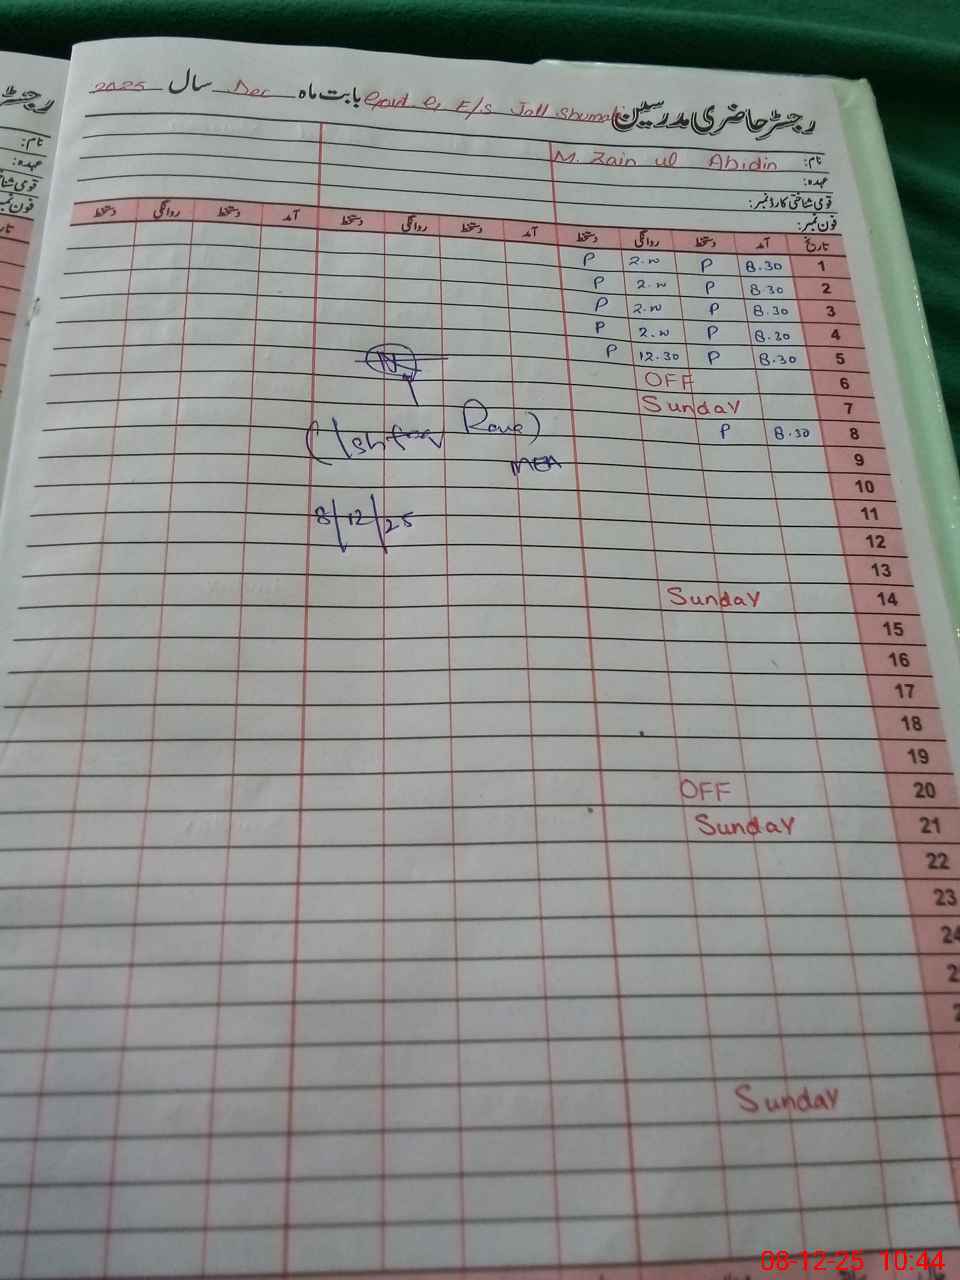 رجسٹر حاضری مدرسین Govt E/S Jall Shumali بابت ماہ Dec سال 2025
نام: M. Zain ul Abidin
عہدہ:
قومی شناختی کارڈ نمبر:
فون نمبر:
تاریخ آمد دستخط روانگی دستخط آمد دستخط روانگی دستخط آمد دستخط روانگی دستخط
1 8.30 P 2.00 P
2 8.30 P 2.00 P
3 8.30 P 2.00 P
4 8.30 P 2.00 P
5 8.30 P 12.30 P
6 OFF
7 Sunday
8 8.30 P
(Ishfaq Rana)
MEA
9
10
11
8/12/25
12
13
14 Sunday
15
16
17
18
19
20 OFF
21 Sunday
22
23
24
2
2
Sunday
رجسٹر
نام:
عہدہ:
قومی شنا
فون نمبر
08-12-25 10:44